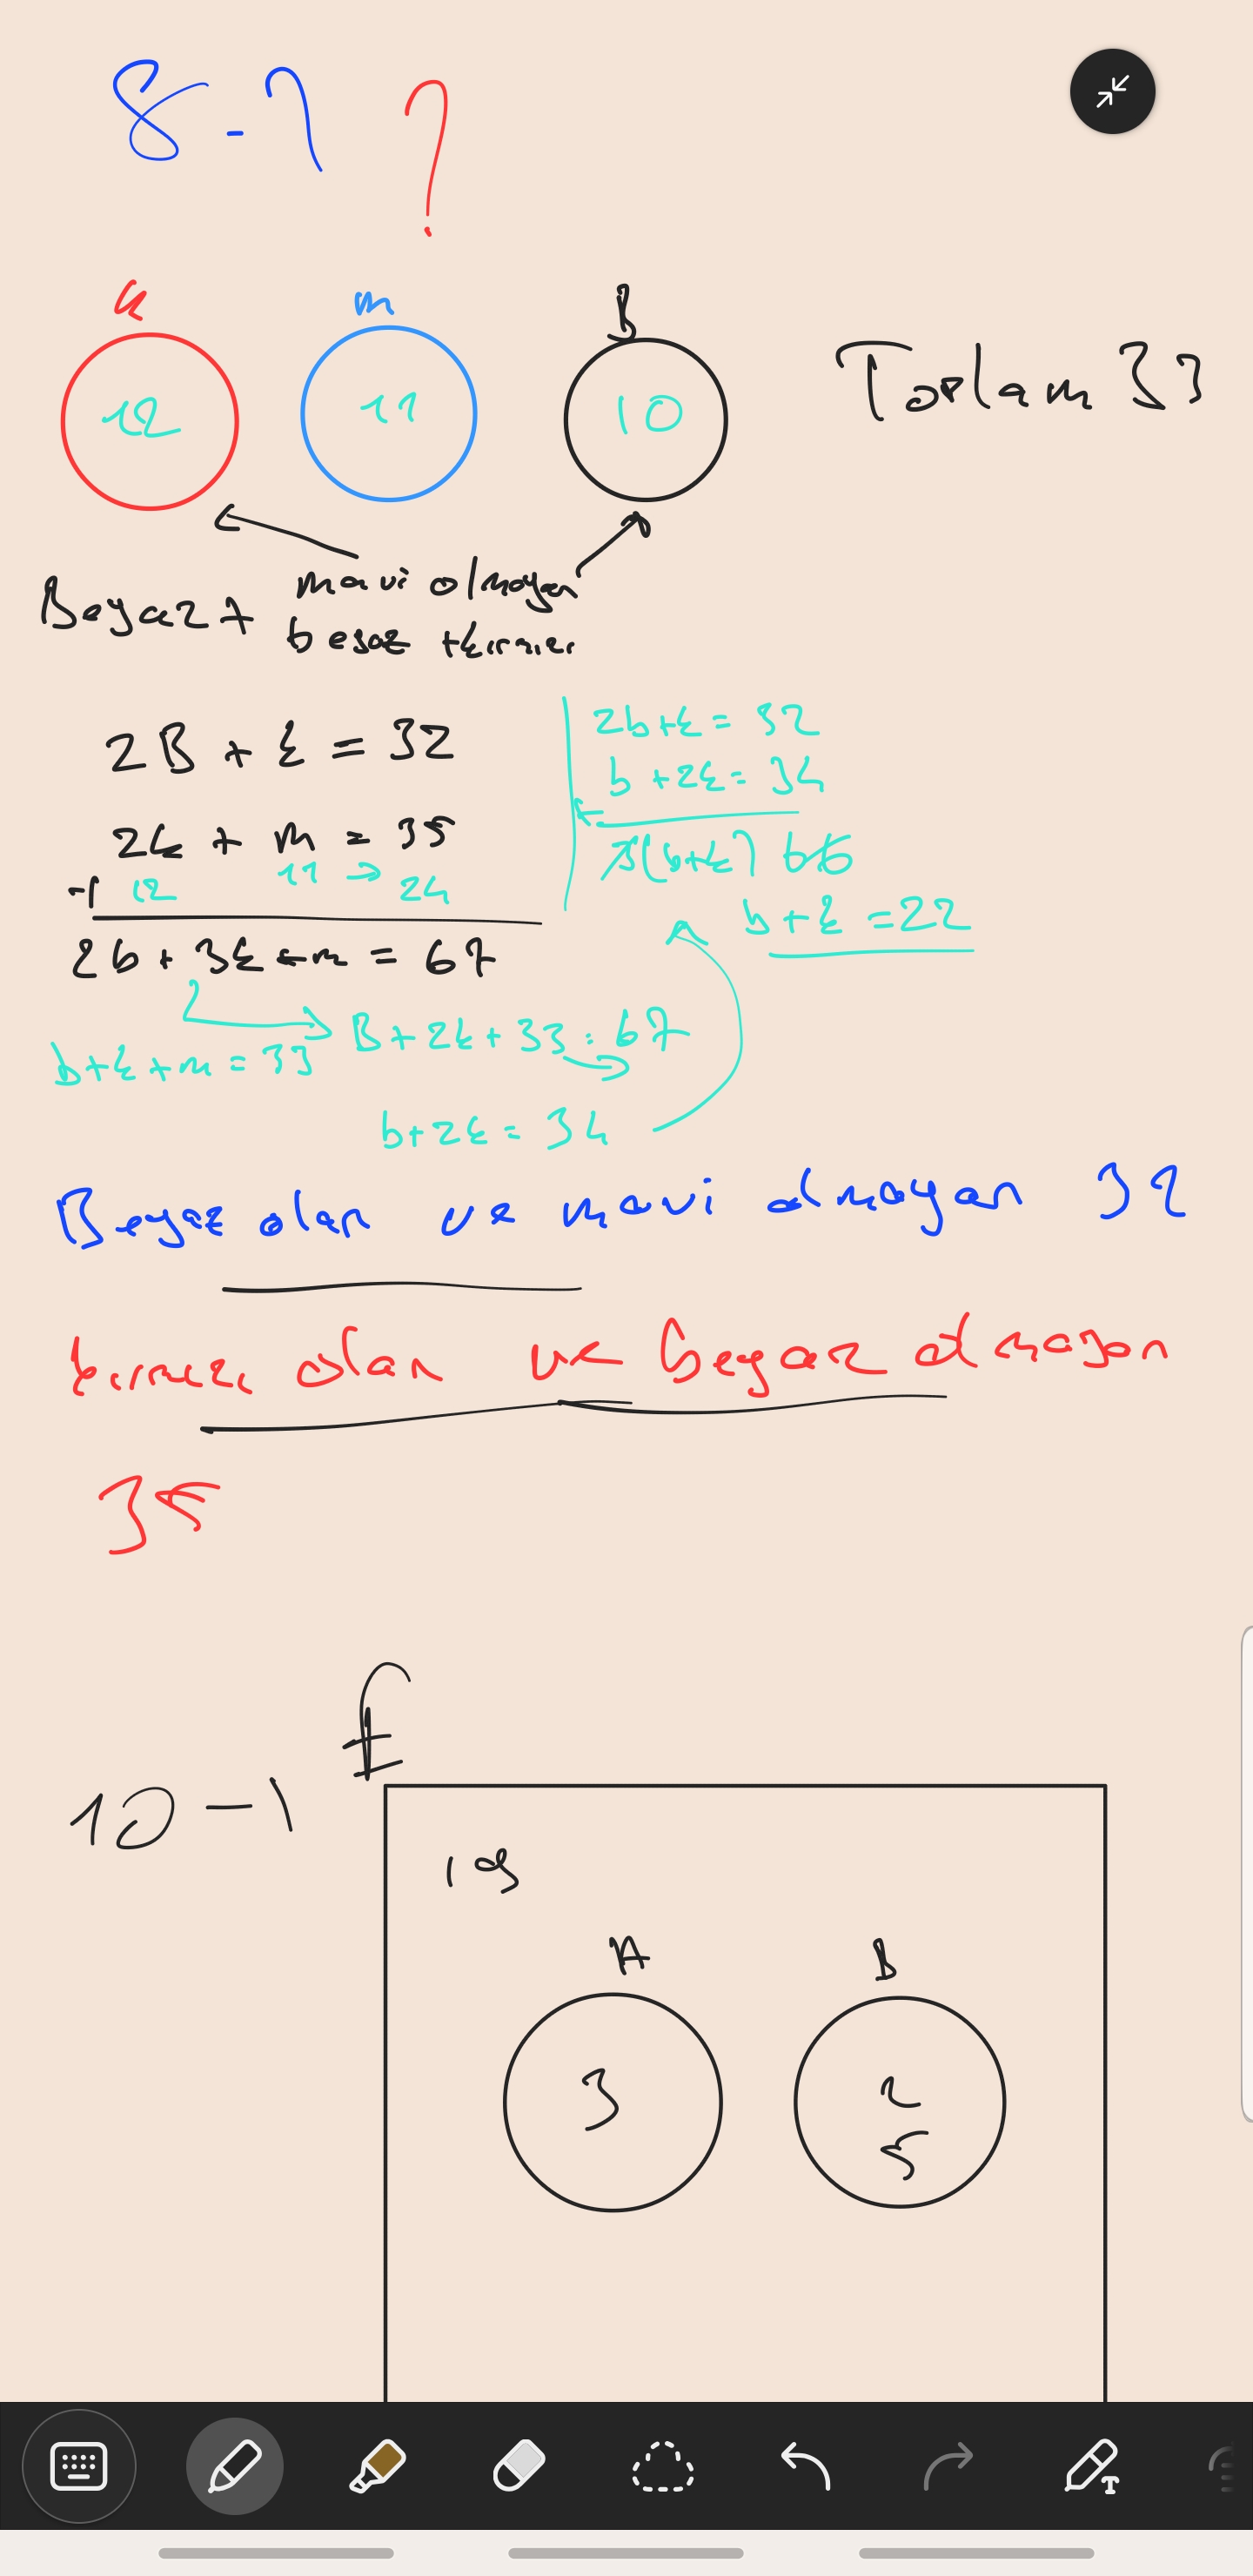 8-1 ?
k m B
12 11 10 Toplam 33
Beyaz + mavi olmayan
beyaz + kırmızı
2B + k = 32
2k + m = 35
12 11 → 24
2b + 3k + m = 67
2b+k = 32
b +2k = 34
3(b+k) 66
b+k = 22
B+2k+33 = 67
b+k+m = 33
b+2k = 34
Beyaz olan ve mavi olmayan 32
kırmızı olan ve beyaz olmayan
35
10-1 E
19
A B
3 2
5
T